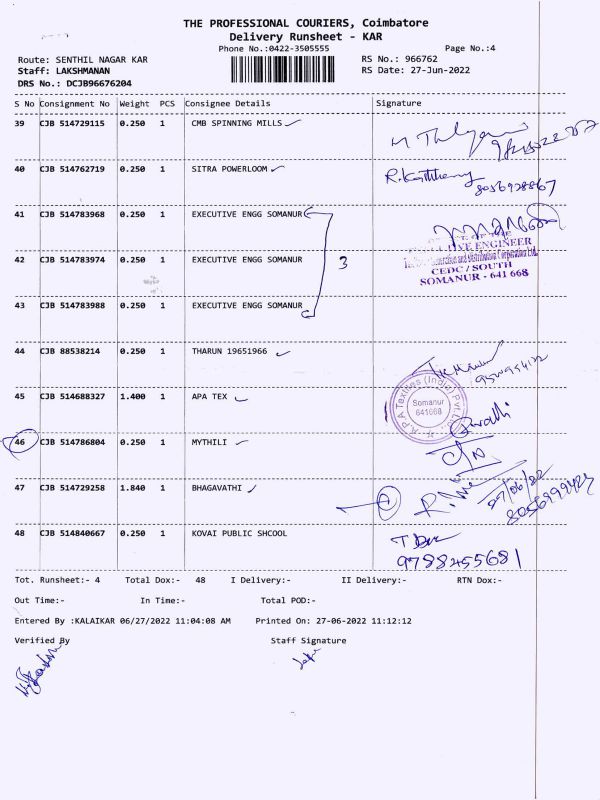 THE PROFESSIONAL COURIERS, Coimbatore
Delivery Runsheet - KAR
Phone No.:0422-3505555
Page No.:4
Route: SENTHIL NAGAR KAR
RS No.: 966762
Staff: LAKSHMANAN
RS Date: 27-Jun-2022
DRS No.: DCJB96676204
S No Consignment No Weight PCS Consignee Details Signature
39 CJB 514729115 0.250 1 CMB SPINNING MILLS
40 CJB 514762719 0.250 1 SITRA POWERLOOM
8056928867
41 CJB 514783968 0.250 1 EXECUTIVE ENGG SOMANUR
42 CJB 514783974 0.250 1 EXECUTIVE ENGG SOMANUR
3
EXECUTIVE ENGINEER
Generation and Distribution Corporation Ltd.
CEDC / SOUTH
SOMANUR - 641 668
43 CJB 514783988 0.250 1 EXECUTIVE ENGG SOMANUR
44 CJB 88538214 0.250 1 THARUN 19651966
45 CJB 514688327 1.400 1 APA TEX
A.P.A Textiles (India) Pvt. Ltd.
Somanur
641668
46 CJB 514786804 0.250 1 MYTHILI
47 CJB 514729258 1.840 1 BHAGAVATHI
27/06/22
8056999424
48 CJB 514840667 0.250 1 KOVAI PUBLIC SHCOOL
9788455681
Tot. Runsheet:- 4 Total Dox:- 48 I Delivery:- II Delivery:- RTN Dox:-
Out Time:- In Time:- Total POD:-
Entered By :KALAIKAR 06/27/2022 11:04:08 AM Printed On: 27-06-2022 11:12:12
Verified By Staff Signature